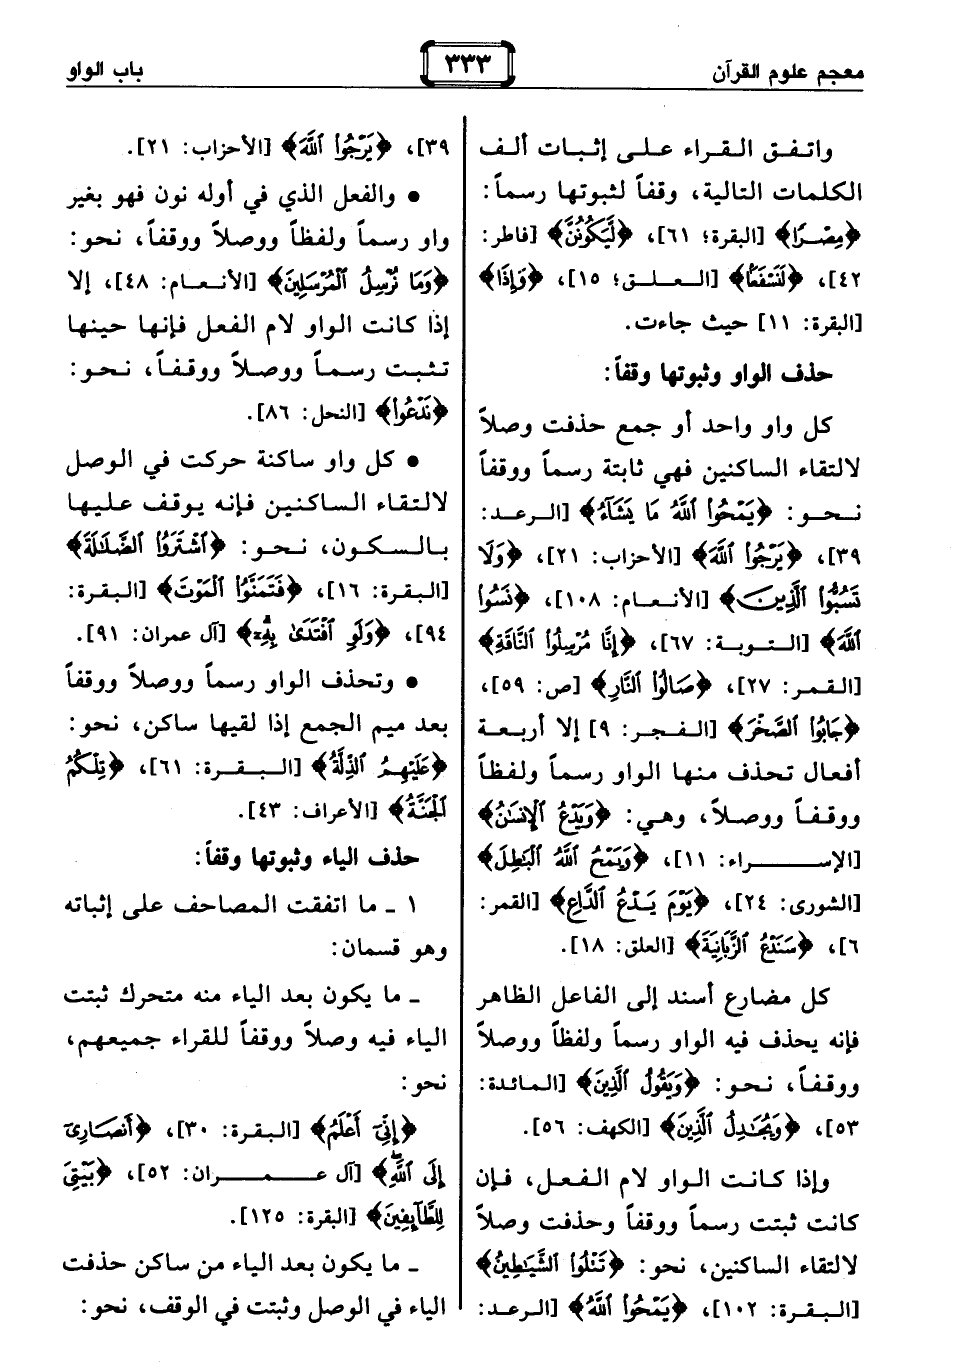 معجم علوم القرآن
٣٣٣
باب الواو
واتفق القراء على إثبات ألف
الكلمات التالية، وقفاً لثبوتها رسماً:
﴿مِصْرًا﴾ [البقرة؛ ٦١]، ﴿لَّيَكُونُنَّ﴾ [فاطر:
٤٢]، ﴿لَنَسْفَعًا﴾ [العلق؛ ١٥]، ﴿وَإِذَا﴾
[البقرة: ١١] حيث جاءت.
حذف الواو وثبوتها وقفاً:
كل واو واحد أو جمع حذفت وصلاً
لالتقاء الساكنين فهي ثابتة رسماً ووقفاً
نحو: ﴿يَمْحُوا۟ ٱللَّهُ مَا يَشَآءُ﴾ [الرعد:
٣٩]، ﴿يَرْجُوا۟ ٱللَّهَ﴾ [الأحزاب: ٢١]، ﴿وَلَا
تَسُبُّوا۟ ٱلَّذِينَ﴾ [الأنعام: ١٠٨]، ﴿نَسُوا۟
ٱللَّهَ﴾ [التوبة: ٦٧]، ﴿إِنَّا مُرْسِلُوا۟ ٱلنَّاقَةِ﴾
[القمر: ٢٧]، ﴿صَالُوا۟ ٱلنَّارِ﴾ [ص: ٥٩]،
﴿جَابُوا۟ ٱلصَّخْرَ﴾ [الفجر: ٩] إلا أربعة
أفعال تحذف منها الواو رسماً ولفظاً
ووقفاً ووصلاً، وهي: ﴿وَيَدْعُ ٱلْإِنسَٰنُ﴾
[الإسراء: ١١]، ﴿وَيَمْحُ ٱللَّهُ ٱلْبَٰطِلَ﴾
[الشورى: ٢٤]، ﴿يَوْمَ يَدْعُ ٱلدَّاعِ﴾ [القمر:
٦]، ﴿سَنَدْعُ ٱلزَّبَانِيَةَ﴾ [العلق: ١٨].
كل مضارع أسند إلى الفاعل الظاهر
فإنه يحذف فيه الواو رسماً ولفظاً ووصلاً
ووقفاً، نحو: ﴿وَيَقُولُ ٱلَّذِينَ﴾ [المائدة:
٥٣]، ﴿وَيُجَٰدِلُ ٱلَّذِينَ﴾ [الكهف: ٥٦].
وإذا كانت الواو لام الفعل، فإن
كانت ثبتت رسماً ووقفاً وحذفت وصلاً
لالتقاء الساكنين، نحو: ﴿تَتْلُوا۟ ٱلشَّيَٰطِينُ﴾
[البقرة: ١٠٢]، ﴿يَمْحُوا۟ ٱللَّهُ﴾ [الرعد:
٣٩]، ﴿يَرْجُوا۟ ٱللَّهَ﴾ [الأحزاب: ٢١].
• والفعل الذي في أوله نون فهو بغير
واو رسماً ولفظاً ووصلاً ووقفاً، نحو:
﴿وَمَا نُرْسِلُ ٱلْمُرْسَلِينَ﴾ [الأنعام: ٤٨]، إلا
إذا كانت الواو لام الفعل فإنها حينها
تثبت رسماً ووصلاً ووقفاً، نحو:
﴿نَدْعُوا۟﴾ [النحل: ٨٦].
• كل واو ساكنة حركت في الوصل
لالتقاء الساكنين فإنه يوقف عليها
بالسكون، نحو: ﴿ٱشْتَرَوُا۟ ٱلضَّلَٰلَةَ﴾
[البقرة: ١٦]، ﴿فَتَمَنَّوُا۟ ٱلْمَوْتَ﴾ [البقرة:
٩٤]، ﴿وَلَوِ ٱفْتَدَىٰ بِهِۦٓ﴾ [آل عمران: ٩١].
• وتحذف الواو رسماً ووصلاً ووقفاً
بعد ميم الجمع إذا لقيها ساكن، نحو:
﴿عَلَيْهِمُ ٱلذِّلَّةُ﴾ [البقرة: ٦١]، ﴿تِلْكُمُ
ٱلْجَنَّةُ﴾ [الأعراف: ٤٣].
حذف الياء وثبوتها وقفاً:
١ ـ ما اتفقت المصاحف على إثباته
وهو قسمان:
ـ ما يكون بعد الياء منه متحرك ثبتت
الياء فيه وصلاً ووقفاً للقراء جميعهم،
نحو:
﴿إِنِّىٓ أَعْلَمُ﴾ [البقرة: ٣٠]، ﴿أَنصَارِىٓ
إِلَى ٱللَّهِ﴾ [آل عمران: ٥٢]، ﴿بَيْتِىَ
لِلطَّآئِفِينَ﴾ [البقرة: ١٢٥].
ـ ما يكون بعد الياء من ساكن حذفت
الياء في الوصل وثبتت في الوقف، نحو: